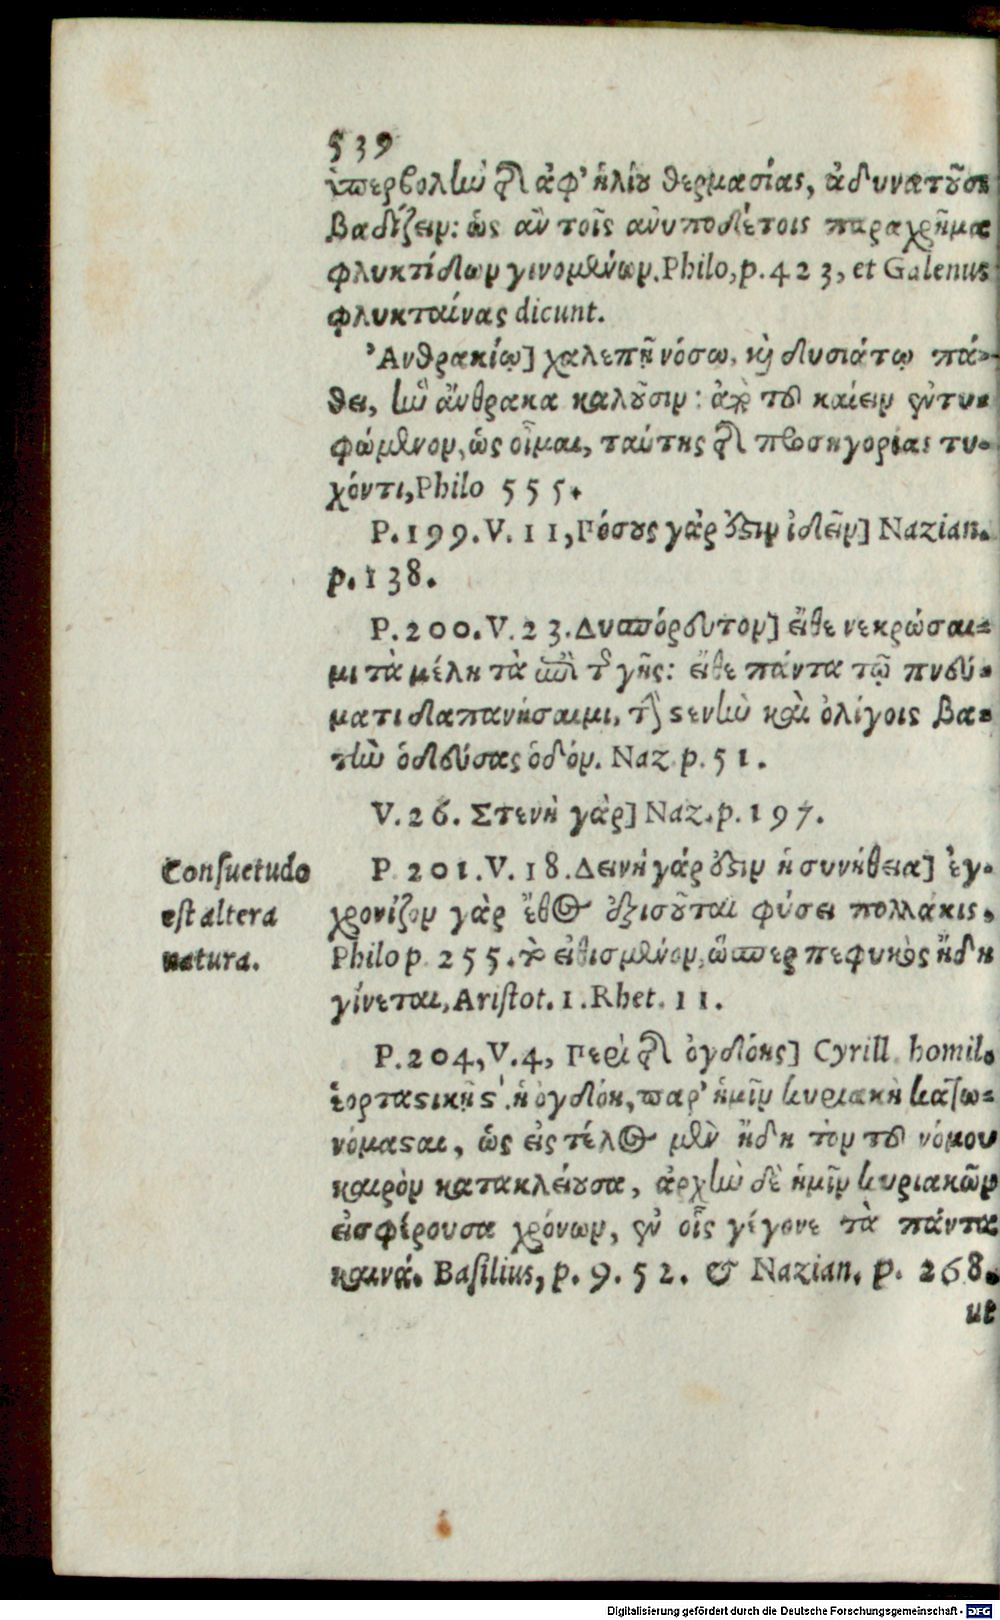 539
ὑπερβολὴν τῆς ἀφ’ ἡλίου θερμασίας, ἀδυνατοῦσι
βαδίζειν: ὡς ἂν τοῖς ἀνυποδέτοις παραχρῆμα
φλυκτίδων γινομένων. Philo, p. 423, et Galenus
φλυκταίνας dicunt.
Ἀνθρακίῳ] χαλεπῇ νόσω, καὶ δυσιάτῳ πά-
θει, ἣν ἄνθρακα καλοῦσιν: ἀπὸ τοῦ καίειν ἐντυ-
φώμενον, ὡς οἶμαι, ταύτης τῆς προσηγορίας τυ-
χόντι, Philo 555.
P. 199. V. 11, Πόσους γὰρ ὅστιν ἰδεῖν] Nazian.
p. 138.
P. 200. V. 23. Δυσπόρευτον] εἴθε νεκρώσαι-
μι τὰ μέλη τὰ ἐπὶ τῆς γῆς: εἴθε πάντα τῷ πνεύ-
ματι δαπανήσαιμι, τὴν στενὴν καὶ ὀλίγοις βα-
τὴν ὁδεύσας ὁδόν. Naz. p. 51.
V. 26. Στενὴ γὰρ] Naz. p. 197.
Consuetudo
est altera
natura.
P. 201. V. 18. Δεινὴ γάρ ὅστιν ἡ συνήθεια] ἐγ-
χρονίζον γὰρ ἔθος ἐξισοῦται φύσει πολλάκις,
Philo p. 255. τὸ εἰθισμένον, ὥσπερ πεφυκὸς ἤδη
γίνεται, Aristot. 1. Rhet. 11.
P. 204, V. 4, Περὶ τῆς ὀγδόης] Cyrill. homil.
ἑορταστικῆς ϛʹ. ἡ ὀγδόη, παρ’ ἡμῖν κυριακὴ κατω-
νόμασαι, ὡς εἰς τέλος μὲν ἤδη τὸν τοῦ νόμου
καιρὸν κατακλείουσα, ἀρχὴν δὲ ἡμῖν κυριακῶν
εἰσφέρουσα χρόνων, ἐν οἷς γέγονε τὰ πάντα
καινά. Basilius, p. 9. 52. & Nazian. p. 268.
ut
Digitalisierung gefördert durch die Deutsche Forschungsgemeinschaft - DFG